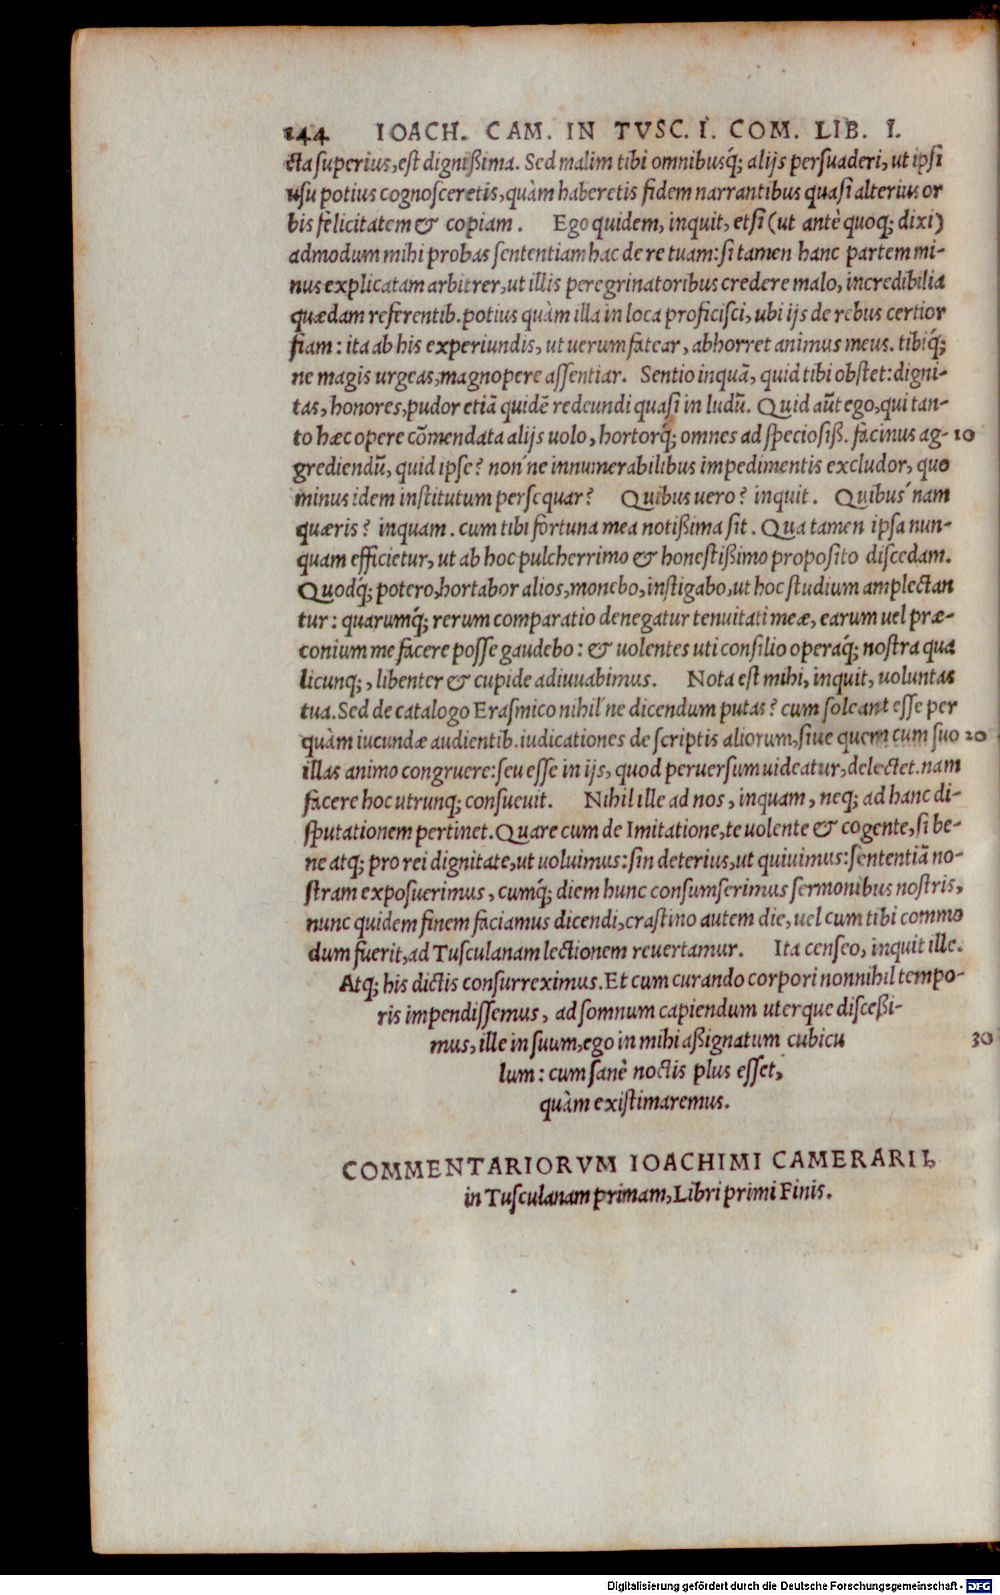 144 IOACH. CAM. IN TVSC. I. COM. LIB. I.
cta superius, est dignißima. Sed malim tibi omnibusq́; alijs persuaderi, ut ipsi
usu potius cognosceretis, quàm haberetis fidem narrantibus quasi alterius or
bis felicitatem & copiam. Ego quidem, inquit, etsi (ut antè quoq; dixi)
admodum mihi probas sententiam hac de re tuam: si tamen hanc partem mi-
nus explicatam arbitrer, ut illis peregrinatoribus credere malo, incredibilia
quædam referentib. potius quàm illa in loca proficisci, ubi ijs de rebus certior
fiam: ita ab his experiundis, ut uerum fatear, abhorret animus meus. tibiq́;
ne magis urgeas, magnopere assentiar. Sentio inquā, quid tibi obstet: digni-
tas, honores, pudor etiā quidē redeundi quasi in ludū. Quid aūt ego, qui tan-
to hæc opere cōmendata alijs uolo, hortorq́; omnes ad speciosiß. facinus ag- 10
grediendū, quid ipse? non'ne innumerabilibus impedimentis excludor, quo
minus idem institutum persequar? Quibus uero? inquit. Quibus'nam
quæris? inquam. cum tibi fortuna mea notißima sit. Qua tamen ipsa nun-
quam efficietur, ut ab hoc pulcherrimo & honestißimo proposito discedam.
Quodq́; potero, hortabor alios, monebo, instigabo, ut hoc studium amplectan
tur: quarumq́; rerum comparatio denegatur tenuitati meæ, earum uel præ-
conium me facere posse gaudebo: & uolentes uti consilio operaq́; nostra qua
licunq;, libenter & cupide adiuuabimus. Nota est mihi, inquit, uoluntas
tua. Sed de catalogo Erasmico nihil'ne dicendum putas? cum soleant esse per
quàm iucundæ audientib. iudicationes de scriptis aliorum, siue quem cum suo 20
illas animo congruere: seu esse in ijs, quod peruersum uideatur, delectet. nam
facere hoc utrunq; consueuit. Nihil ille ad nos, inquam, neq; ad hanc di-
sputationem pertinet. Quare cum de Imitatione, te uolente & cogente, si be-
ne atq; pro rei dignitate, ut uoluimus: sin deterius, ut quiuimus: sententiā no-
stram exposuerimus, cumq́; diem hunc consumserimus sermonibus nostris,
nunc quidem finem faciamus dicendi, crastino autem die, uel cum tibi commo
dum fuerit, ad Tusculanam lectionem reuertamur. Ita censeo, inquit ille.
Atq; his dictis consurreximus. Et cum curando corpori nonnihil tempo-
ris impendissemus, ad somnum capiendum uterque disceßi-
mus, ille in suum, ego in mihi aßignatum cubicu 30
lum: cum sanè noctis plus esset,
quàm existimaremus.
COMMENTARIORVM IOACHIMI CAMERARII,
in Tusculanam primam, Libri primi Finis.
Digitalisierung gefördert durch die Deutsche Forschungsgemeinschaft - DFG